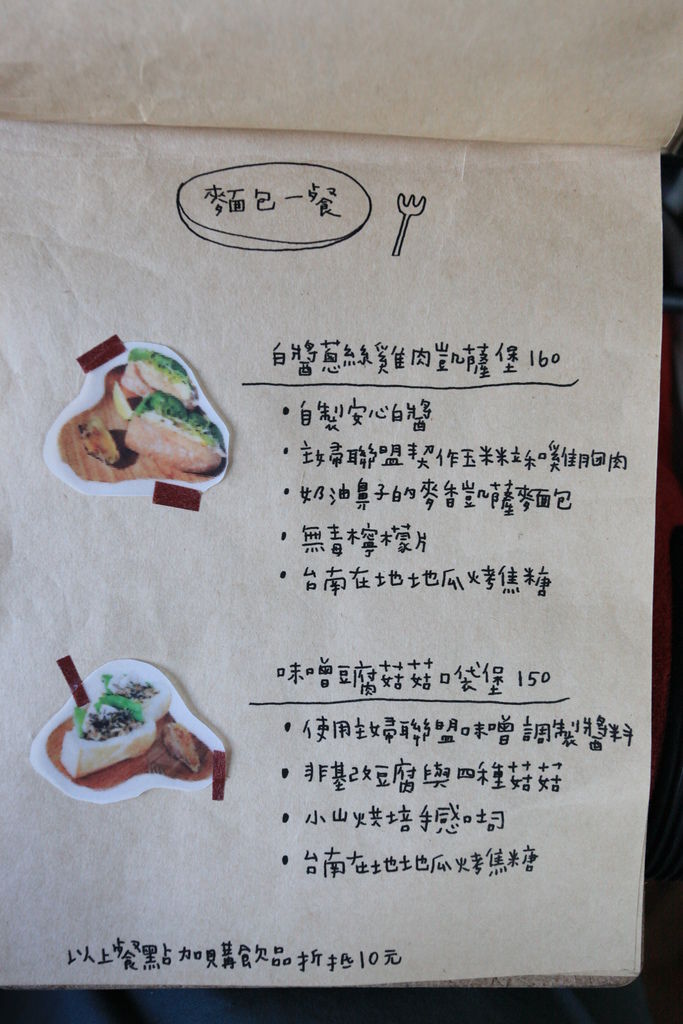 麵包一餐
白醬蔥絲雞肉凱薩堡 160
• 自製安心白醬
• 主婦聯盟契作玉米粒和雞胸肉
• 奶油鼻子的麥香凱薩麵包
• 無毒檸檬片
• 台南在地地瓜烤焦糖
味噌豆腐菇菇口袋堡 150
• 使用主婦聯盟味噌調製醬料
• 非基改豆腐與四種菇菇
• 小山烘培手感吐司
• 台南在地地瓜烤焦糖
以上餐點加購飲品折抵10元